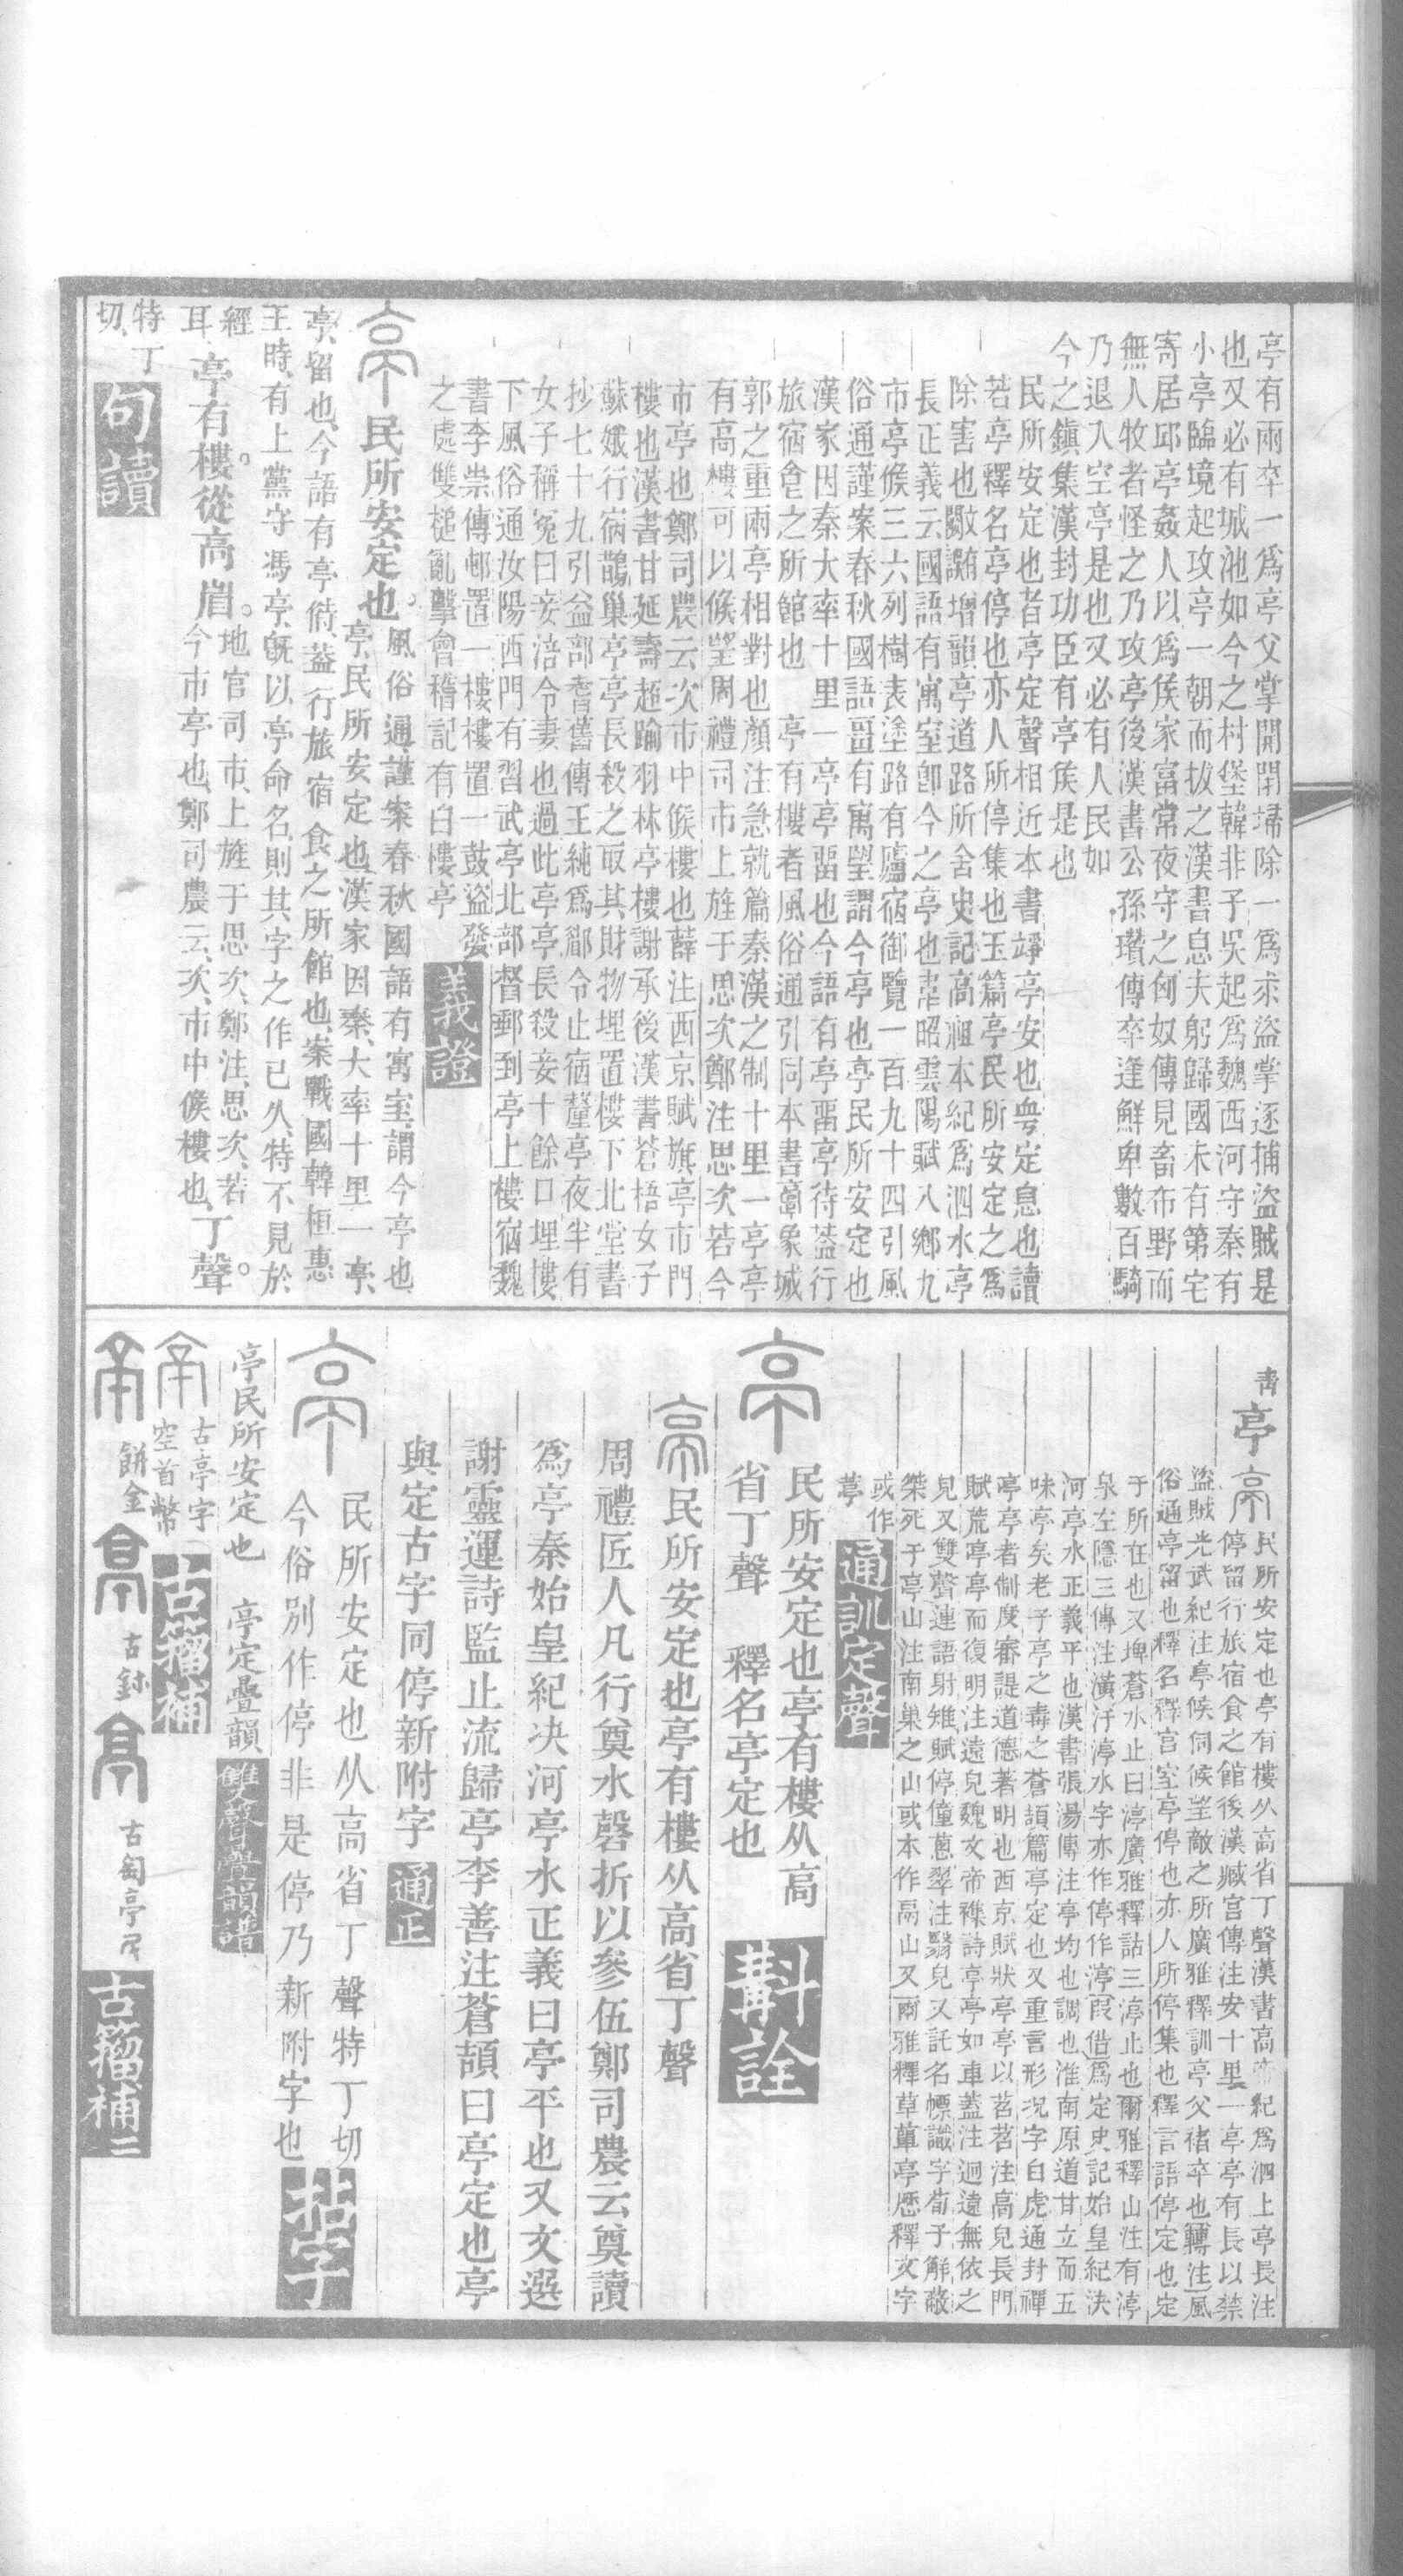 亭有兩卒一爲亭父掌開閉埽除一爲求盜掌逐捕盜賊是
也又必有城池如今之村堡韓非子吳起爲魏西河守秦有
小亭臨境起攻亭一朝而拔之漢書息夫躬歸國未有第宅
寄居邱亭姦人以爲侯家富常夜守之匈奴傳見畜布野而
無人牧者怪之乃攻亭後漢書公孫瓚傳卒逢鮮卑數百騎
乃退入空亭是也又必有人民如
今之鎭集漢封功臣有亭侯是也
民所安定也者亭定聲相近本書竫亭安也甹定息也讀
若亭釋名亭停也亦人所停集也玉篇亭民所安定之爲
除害也歐諧增韻亭道路所舍史記高祖本紀爲泗水亭
長正義云國語有寓室卽今之亭也韋昭雲陽賦八鄕九
市亭候三六列樹表塗路有廬宿御覽一百九十四引風
俗通謹案春秋國語畺有寓望謂今亭也亭民所安定也
漢家因秦大率十里一亭亭畱也今語有亭畱亭待葢行
旅宿食之所館也　亭有樓者風俗通引同本書𩫖象城
郭之重兩亭相對也顏注急就篇秦漢之制十里一亭亭
有高樓可以候望周禮司市上旌于思次鄭注思次若今
市亭也鄭司農云次市中候樓也薛注西京賦旗亭市門
樓也漢書甘延壽超踰羽林亭樓謝承後漢書蒼梧女子
蘇娥行宿鵲巢亭亭長殺之取其財物埋置樓下北堂書
抄七十九引益部耆舊傳王純爲郿令止宿釐亭夜半有
女子稱冤曰妾涪令妻也過此亭亭長殺妾十餘口埋樓
下風俗通汝陽西門有習武亭北部督郵到亭上樓宿魏
書李崇傳邨置一樓樓置一鼓盜發
之處雙槌亂擊會稽記有白樓亭 義證
民所安定也。風俗通、謹案春秋國語有寓室、謂今亭也
亭、民所安定也、漢家因秦、大率十里一亭、
亭、留也、今語有亭待、葢行旅宿食之所館也、案戰國韓桓惠
王時、有上黨守馮亭、旣以亭命名、則其字之作已久、特不見於
經
耳 亭有樓。從高省。地官司市、上旌于思次、鄭注、思次、若
今市亭也、鄭司農云、次、市中候樓也、丁聲。
特丁
切、 句讀
靑 亭 民所安定也亭有樓从高省丁聲漢書高帝紀爲泗上亭長注
停留行旅宿食之館後漢臧宮傳注安十里一亭亭有長以禁
盜賊光武紀注亭候伺候望敵之所廣雅釋訓亭父褚卒也轉注風
俗通亭留也釋名釋宮室亭停也亦人所停集也釋言語停定也定
于所在也又埤蒼水止曰渟廣雅釋詁三渟止也爾雅釋山注有渟
泉左隱三傳注潢汙渟水字亦作停作渟叚借爲定史記始皇紀決
河亭水正義平也漢書張湯傳注亭均也調也淮南原道甘立而五
味亭矣老子亭之毒之蒼頡篇亭定也又重言形況字白虎通封禪
亭亭者制度審諟道德著明也西京賦狀亭亭以苕苕注高皃長門
賦荒亭亭而復明注遠皃魏文帝襍詩亭亭如車葢注迥遠無依之
皃又雙聲連語射雉賦停僮蔥翠注翳皃又託名幖識字荀子解蔽
桀死于亭山注南巢之山或本作鬲山又爾雅釋草葶亭歷釋文字
或作
葶 通訓定聲
民所安定也亭有樓从高
省丁聲　釋名亭定也 斠詮
民所安定也亭有樓从高省丁聲
周禮匠人凡行奠水磬折以參伍鄭司農云奠讀
爲亭秦始皇紀決河亭水正義曰亭平也又文選
謝靈運詩監止流歸亭李善注蒼頡曰亭定也亭
與定古字同停新附字 通正
民所安定也从高省丁聲特丁切
今俗別作停非是停乃新附字也 𢫦字
亭民所安定也　亭定疊韻 雙聲疊韻譜
古亭字
空首幣 古籀補
餅金 古鉢 古匋亭尻 古籀補二